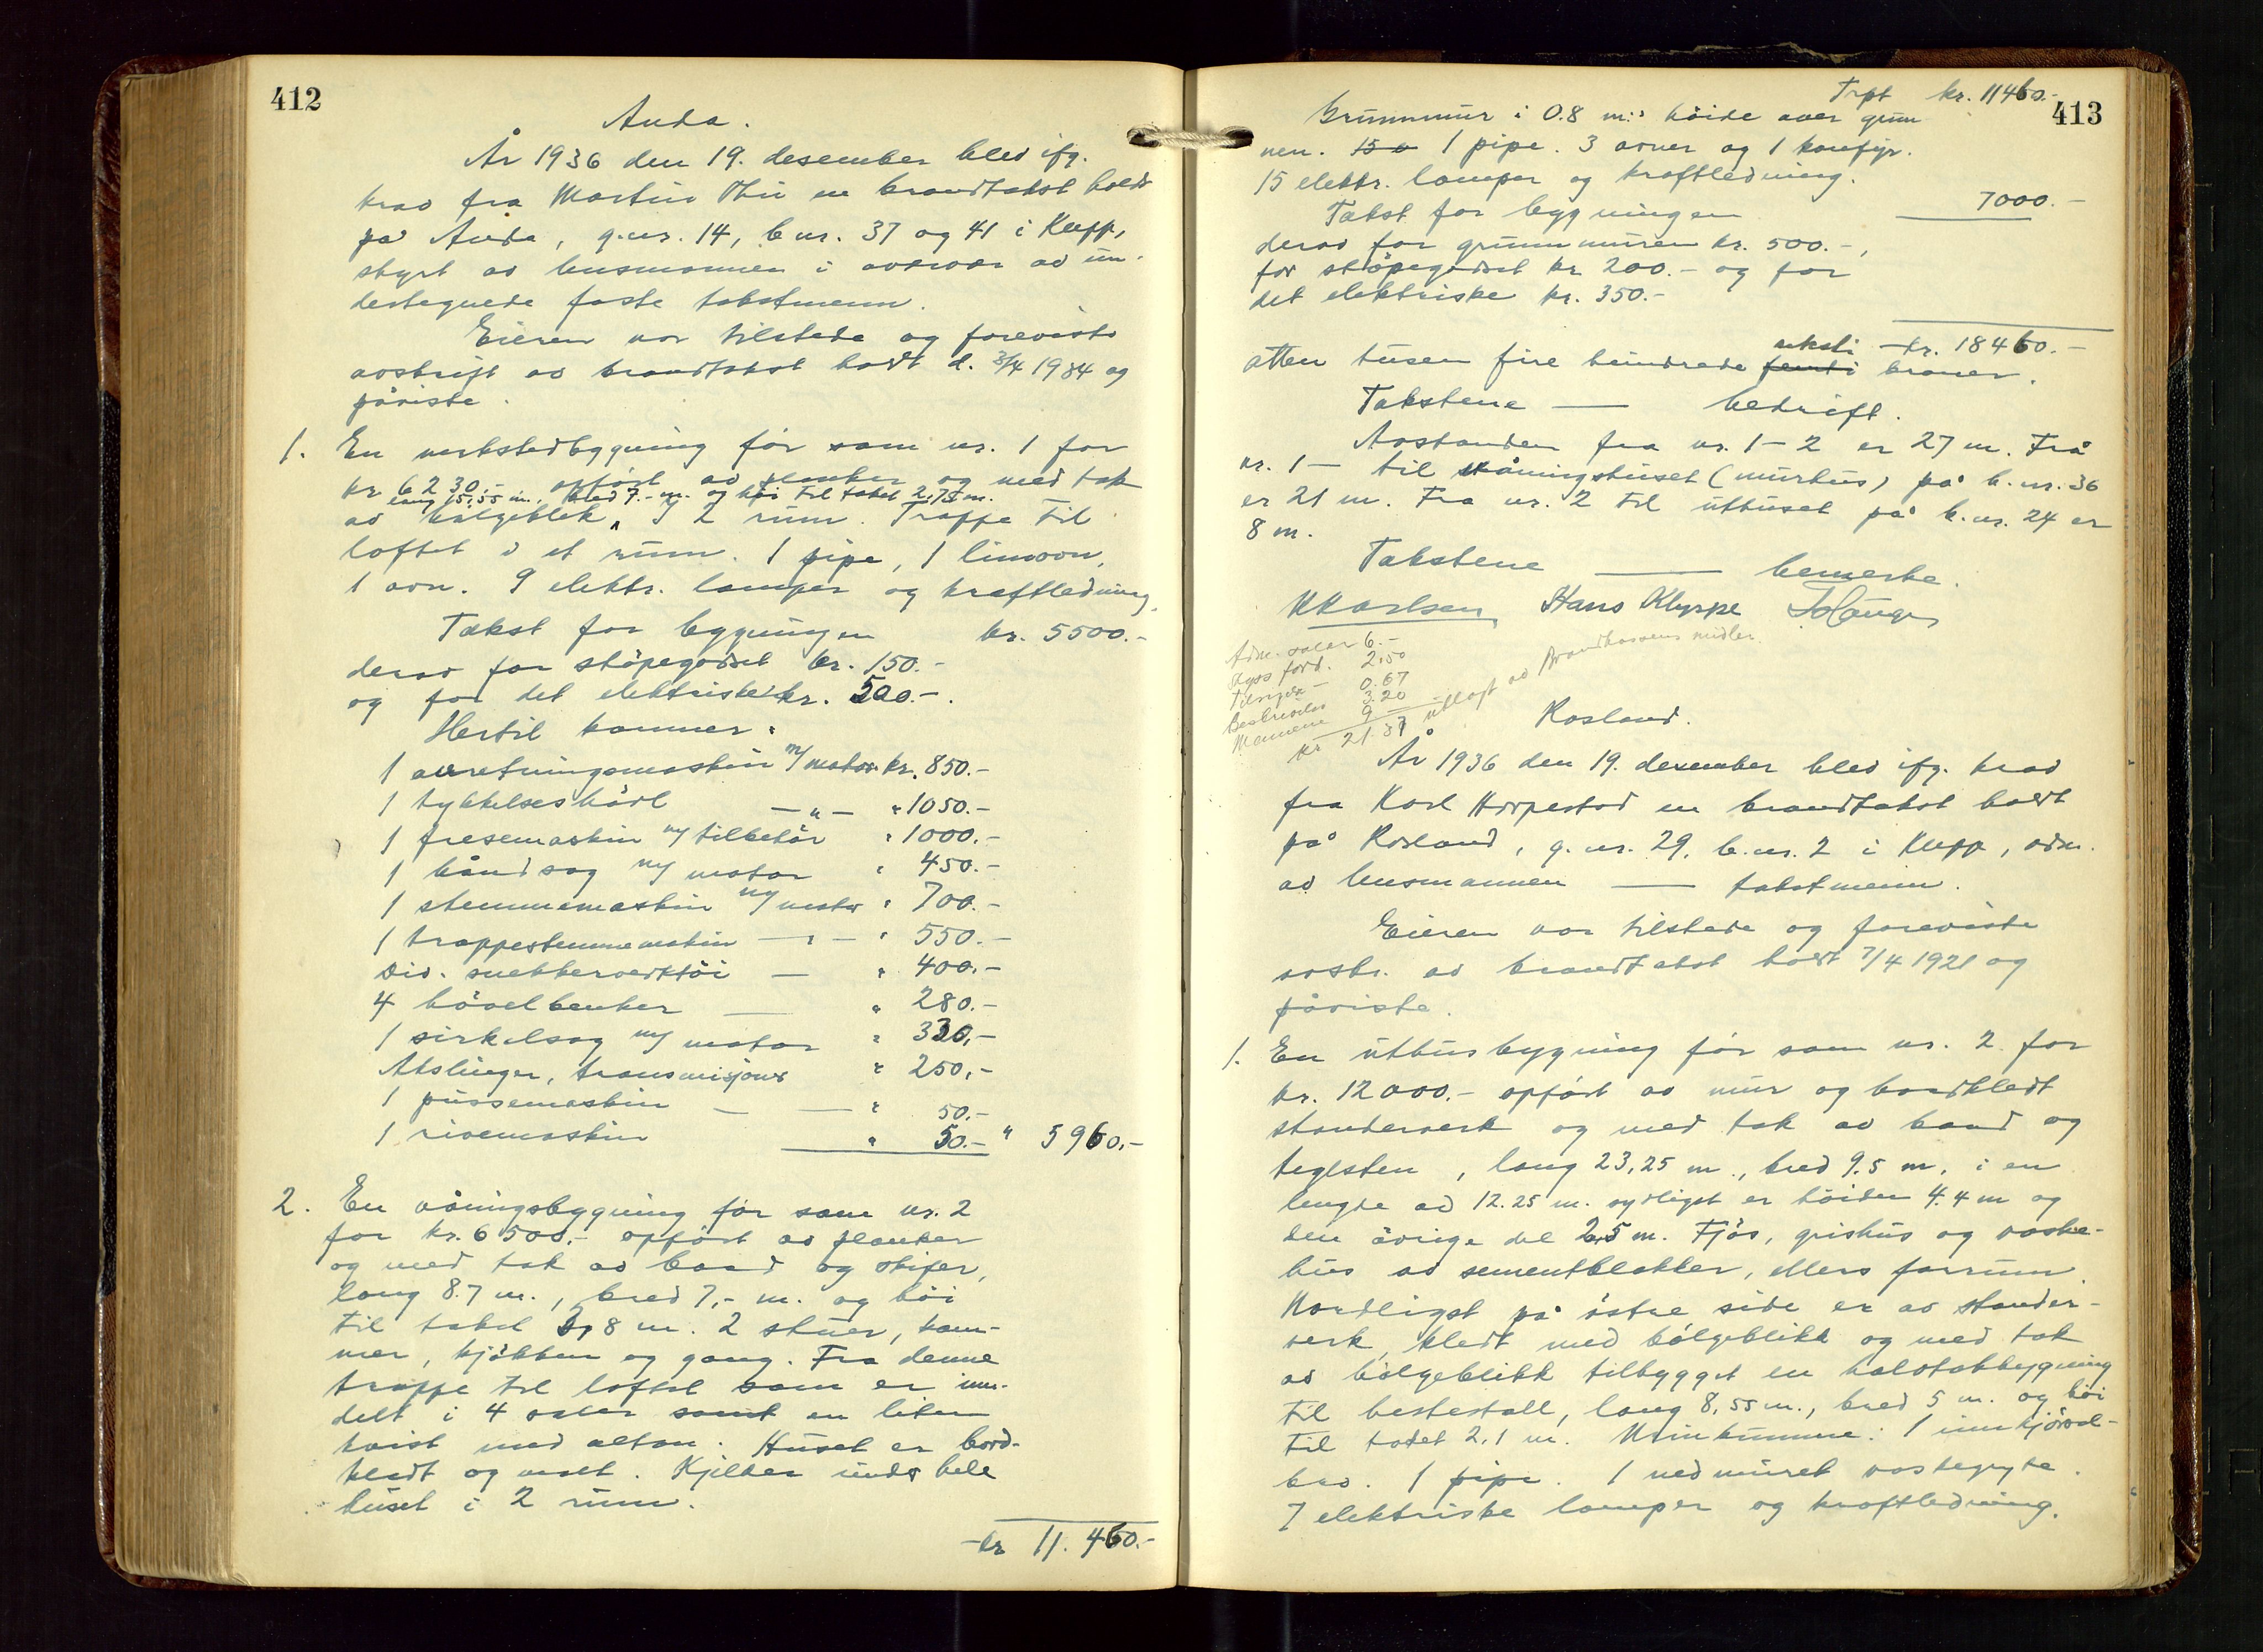 412
Anda.
År 1936 den 19. desember blev ifg.
krav fra Martin Thu en brandtakst holdt
på Anda, g.nr. 14, b nr. 37 og 41 i Klepp,
styrt av lensmannen i overvær av un-
dertegnede faste takstmenn.
Eieren var tilstede og foreviste
avskrift av brandtakst holdt d. 3/4 1934 og
påviste.
1. En verkstedbygning før som nr. 1 for
kr 6230.- opført av planker og med tak
lang 15,55 m., bred 7.- m. og høi til taket 2,75 m.
av bølgeblek, i 2 rum. Trappe til
loftet i et rum. 1 pipe, 1 limovn,
1 ovn. 9 elektr. lamper og kraftledning.
Takst for bygningen kr. 5500.-
derav for støpegodset kr. 150.-
og for det elektriske kr. 500.-.
Hertil kommer:
1 avretningsmaskin m/ motor kr. 850.-
1 tykkelseshövl —"— " 1050.-
1 fresemaskin m/ tilbehör " 1000.-
1 båndsag m/ motor " 450.-
1 stemmemaskin m/ motor " 700.-
1 trappestemmemaskin —"— " 550.-
Div. snekkerverktöi — " 400.-
4 hövelbenker — " 280.-
1 sirkelsag m/ motor " 330,-
Akslinger, transmisjoner " 250,-
1 pussemaskin — — " 50.-
1 rivemaskin " 50.- " 5960,-
2. En våningsbygning før som nr. 2
for kr. 6500.- opført av planker
og med tak av bord og skifer,
lang 8.7 m., bred 7,- m. og høi
til taket 3,8 m. 2 stuer, kam-
mer, kjøkken og gang. Fra denne
trappe til loftet som er inn-
delt i 4 saler samt en liten
kvist med altan. Huset er bord-
kledt og malt. Kjelder under hele
huset i 2 rum.
kr 11.460.-
Trpt kr. 11460.-
413
Grunnmur i 0.8 m:s höide over grun
nen. 15 o 1 pipe. 3 ovner og 1 komfyr.
15 elektr. lamper og kraftledning.
Takst for bygningen 7000.-
derav for grunnmuren kr. 500.-,
for støpegodset kr 200.- og for
det elektriske kr. 350.-
kr. 18460.-
seksti
atten tusen fire hundrede femti kroner.
Takstene — bedrift.
Avstanden fra nr. 1 - 2 er 27 m. Frå
nr. 1 — til våningshuset (murhus) på b.nr. 36
er 21 m. Fra nr. 2 til uthuset på b.nr. 24 er
8 m.
Takstene — bemerke.
Hans Klyppe
Adm. salær 6.-
Skyss ford. 2,50
Tilsyn — 0.67
Beskrivelse 3.20
Mennene 9 —
kr 21.37 utlagt av Brandkassens midler.
Rosland.
År 1936 den 19. desember blev ifg. krav
fra Karl Horpestad en brandtakst holdt
på Rosland, g.nr. 29, b.nr. 2 i Klepp, adm.
av lensmannen — takstmenn.
Eieren var tilstede og foreviste
avskr. av brandtakst holdt 7/4 1921 og
påviste.
1. En uthusbygning før som nr. 2 for
kr. 12000.- opført av mur og bordkledt
standerverk og med tak av bord og
teglsten, lang 23,25 m., bred 9.5 m, i en
lengde av 12.25 m. sydligst er höiden 4.4 m og
den övrige del 2,5 m. Fjös, grishus og vaske-
hus av sementblokker, ellers forrum.
Nordligst på östre side er av stander-
verk, kledt med bølgeblikk og med tak
av bølgeblikk tilbygget en halvtakbygning
til hestestall, lang 8,55 m., bred 5 m. og høi
til taket 2,1 m. Urinkumme. 1 innkjørsel-
bro. 1 pipe. 1 nedmuret vaskegryte.
7 elektriske lamper og kraftledning.